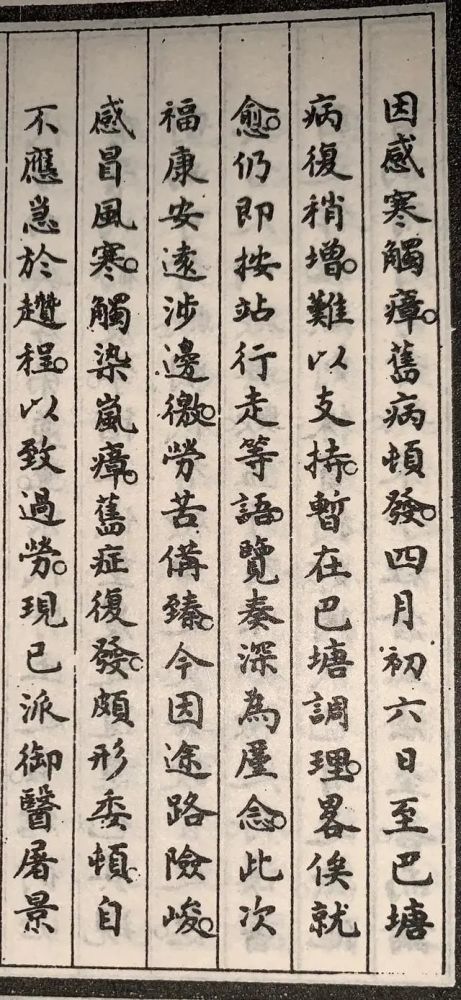 因感寒觸瘴。舊病頓發。四月初六日至巴塘
病復稍增。難以支持。暫在巴塘調理。畧俟就
愈。仍即按站行走等語。覽奏深為廑念。此次
福康安遠涉邊徼。勞苦備臻。今因途路險峻。
感冒風寒。觸染嵐瘴。舊症復發。頗形委頓。自
不應急於趲程。以致過勞。現已派御醫屠景